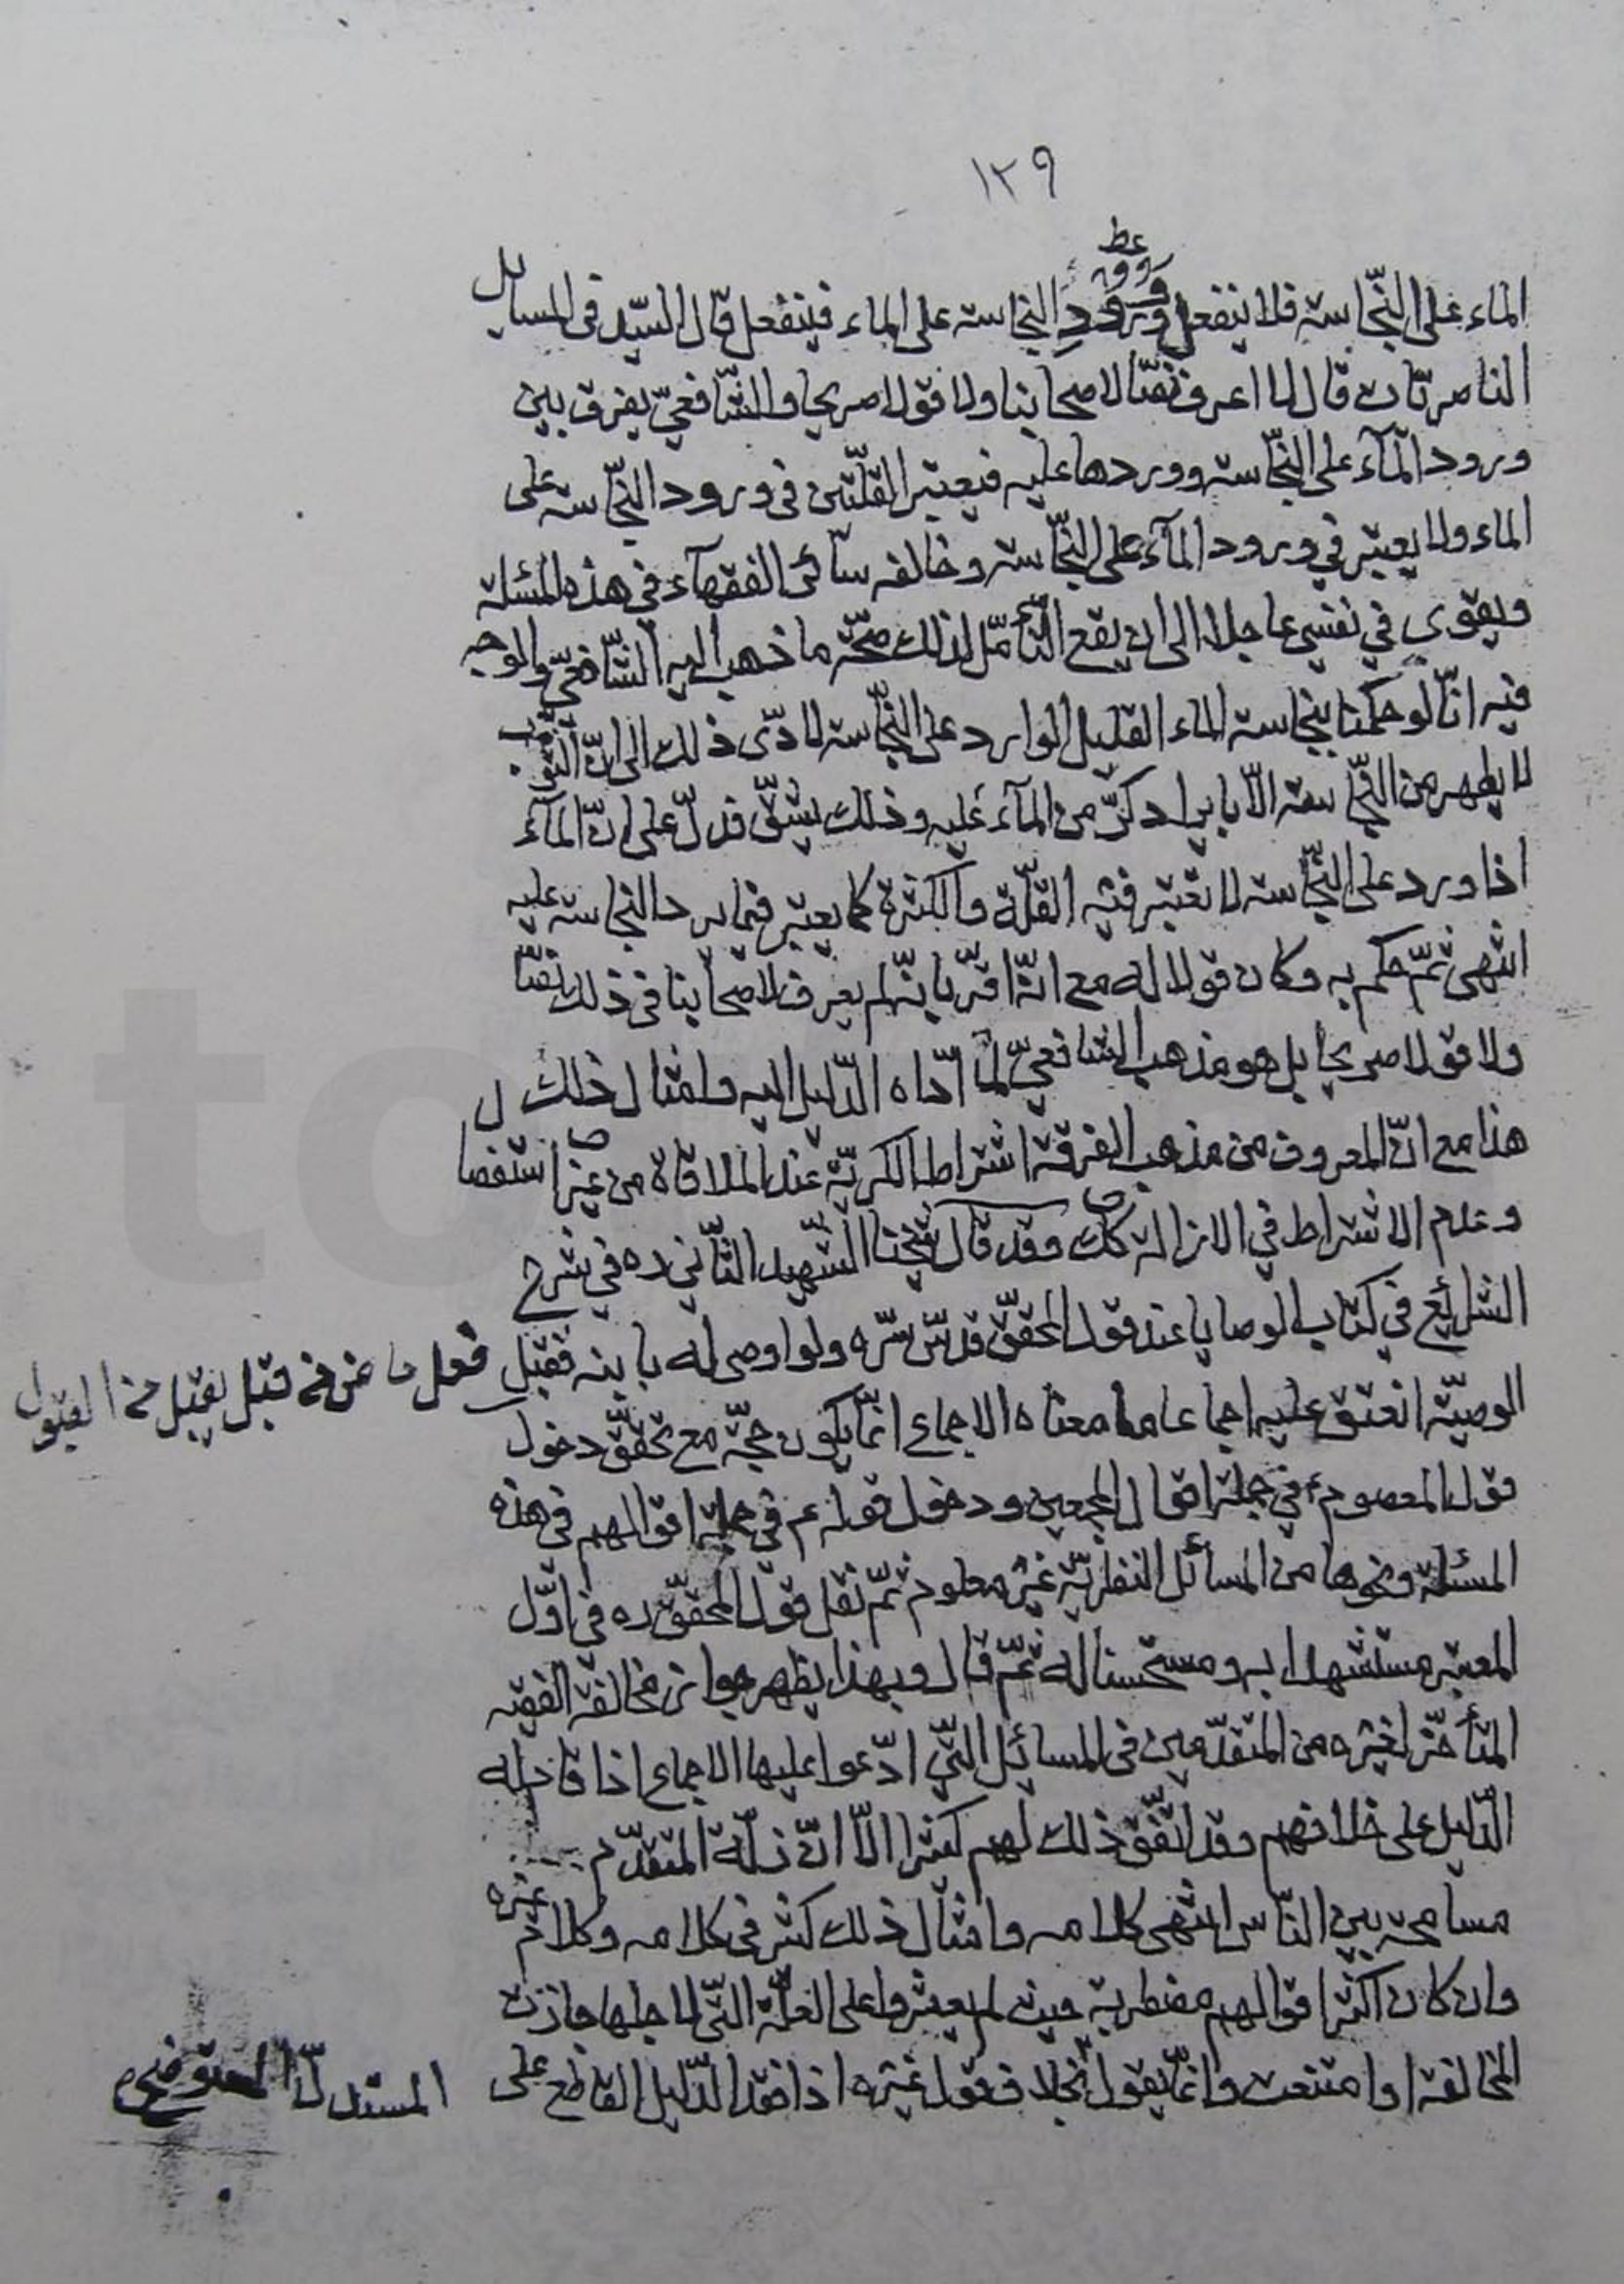 ١٢٩
الماء على النجاسة فلا ينفعل وورود النجاسة على الماء فينفعل قال السيد في المسائل
الناصريات قال لا اعرف نصا لاصحابنا ولا قولا صريحا والشافعي يفرق بين
ورود المآء على النجاسة وورودها عليه فيعتبر القلتين في ورود النجاسة على
الماء ولا يعتبر في ورود المآء على النجاسة وخالفه سائر الفقهآء في هذه المسئلة
ويقوي في نفسي عاجلا الى ان يقع التأمل لذلك صحة ما ذهب اليه الشافعي والوجه
فيه انا لو حكمنا بنجاسة الماء القليل الوارد على النجاسة لادى ذلك الى ان الثوب
لا يطهر من النجاسة الا بايراد كر من المآء عليه وذلك يشق فدل على ان المآء
اذا ورد على النجاسة لا تعتبر فيه القلة والكثرة كما يعتبر فيما يرد النجاسة عليه
انتهى ثم حكم به وكان قولا له مع انه اقر بانه لم يعرف لاصحابنا في ذلك نصا
ولا قولا صريحا بل هو مذهب الشافعي لما اداه الدليل اليه وامثال ذلك
هذا مع ان المعروف من مذهب الفرقة اشتراط الكرية عند الملاقاة من غير استفصال
وعدم الاشتراط في الازالة كك وقد قال شيخنا الشهيد الثاني ره في شرح
الشرائع في كتاب الوصايا عند قول المحقق قدس سره ولو اوصى له بابنه فقبل
الوصية انعتق عليه اجماعا ما معناه الاجماع انما يكون حجة مع تحقق دخول
قول المعصوم ع في جملة اقوال المجمعين ودخول قوله ع في جملة اقوالهم في هذه
المسئلة ونحوها من المسائل النظرية غير معلوم ثم نقل قول المحقق ره في اول
المعتبر مستشهدا به ومستحسنا له ثم قال وبهذا يظهر جواز مخالفة الفقيه
المتأخر لغيره من المتقدمين في المسائل التي ادعوا عليها الاجماع اذا قام له
الدليل على خلافهم وقد اتفق ذلك لهم كثيرا الا ان زلة المتقدم
مسامحة بين الناس انتهى كلامه وامثال ذلك كثير في كلامه وكلام غيره
وان كان اكثر اقوالهم مضطربة حيث لم يعثروا على العلة التي لاجلها جازت
المخالفة او امتنعت وانما يقول بخلاف قول غيره اذا فقد الدليل القاطع على